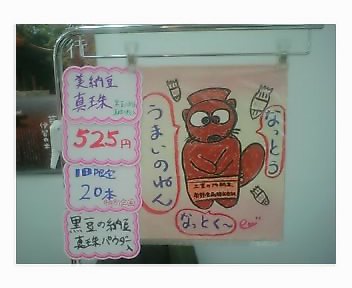 美納豆
真珠
525円
1日限定
20本
黒豆の納豆
真珠パウダー入
なっとう
うまいのねん
なっとく〜